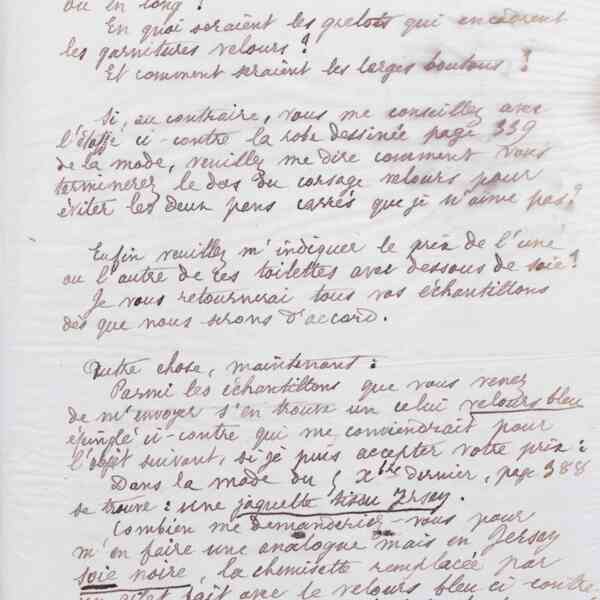 ou en long ?
En quoi seraient les grelots qui encadrent
les garnitures velours ?
Et comment seraient les larges boutons ?
Si, au contraire, vous me conseillez avec
l'étoffe ci-contre la robe dessinée page 339
de la mode, veuillez me dire comment vous
terminerez le dos du corsage velours pour
éviter les deux pans carrés que je n'aime pas ?
Enfin veuillez m'indiquer le prix de l'une
ou l'autre de ces toilettes avec dessous de soie ?
Je vous retournerai tous vos échantillons
dès que nous serons d'accord.
Autre chose, maintenant :
Parmi les échantillons que vous venez
de m'envoyer s'en trouve un celui velours bleu
épinglé ci-contre qui me conviendrait pour
l'objet suivant, si je puis accepter votre prix :
Dans la mode du 5 Xbre dernier, page 388
se trouve : une jaquette tissu Jersey.
Combien me demanderiez-vous pour
m'en faire une analogue mais en Jersey
soie noire, la chemisette remplacée par
un gilet fait avec le velours bleu ci contre